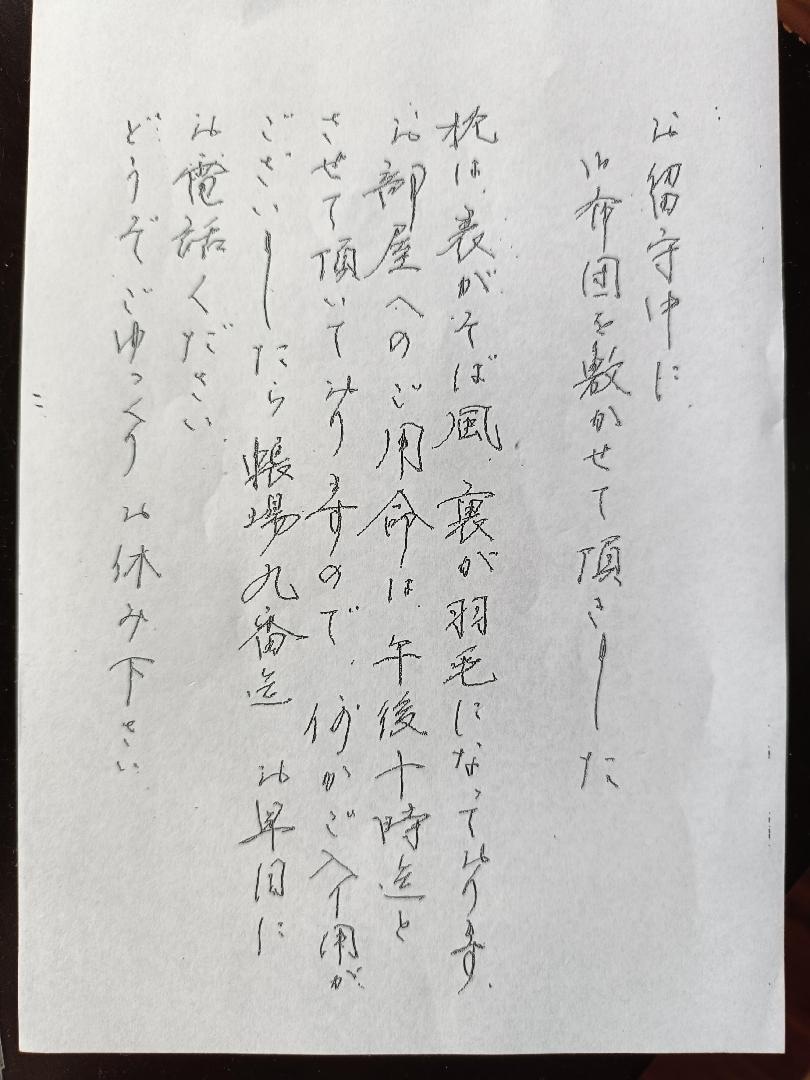 お留守中に
お布団を敷かせて頂きました
枕は、表がそば風、裏が羽毛になっております。
お部屋へのご用命は、午後十時迄と
させて頂いておりますので、何かご入用が
ございましたら 帳場九番迄 お早目に
お電話ください。
どうぞごゆっくりお休み下さい